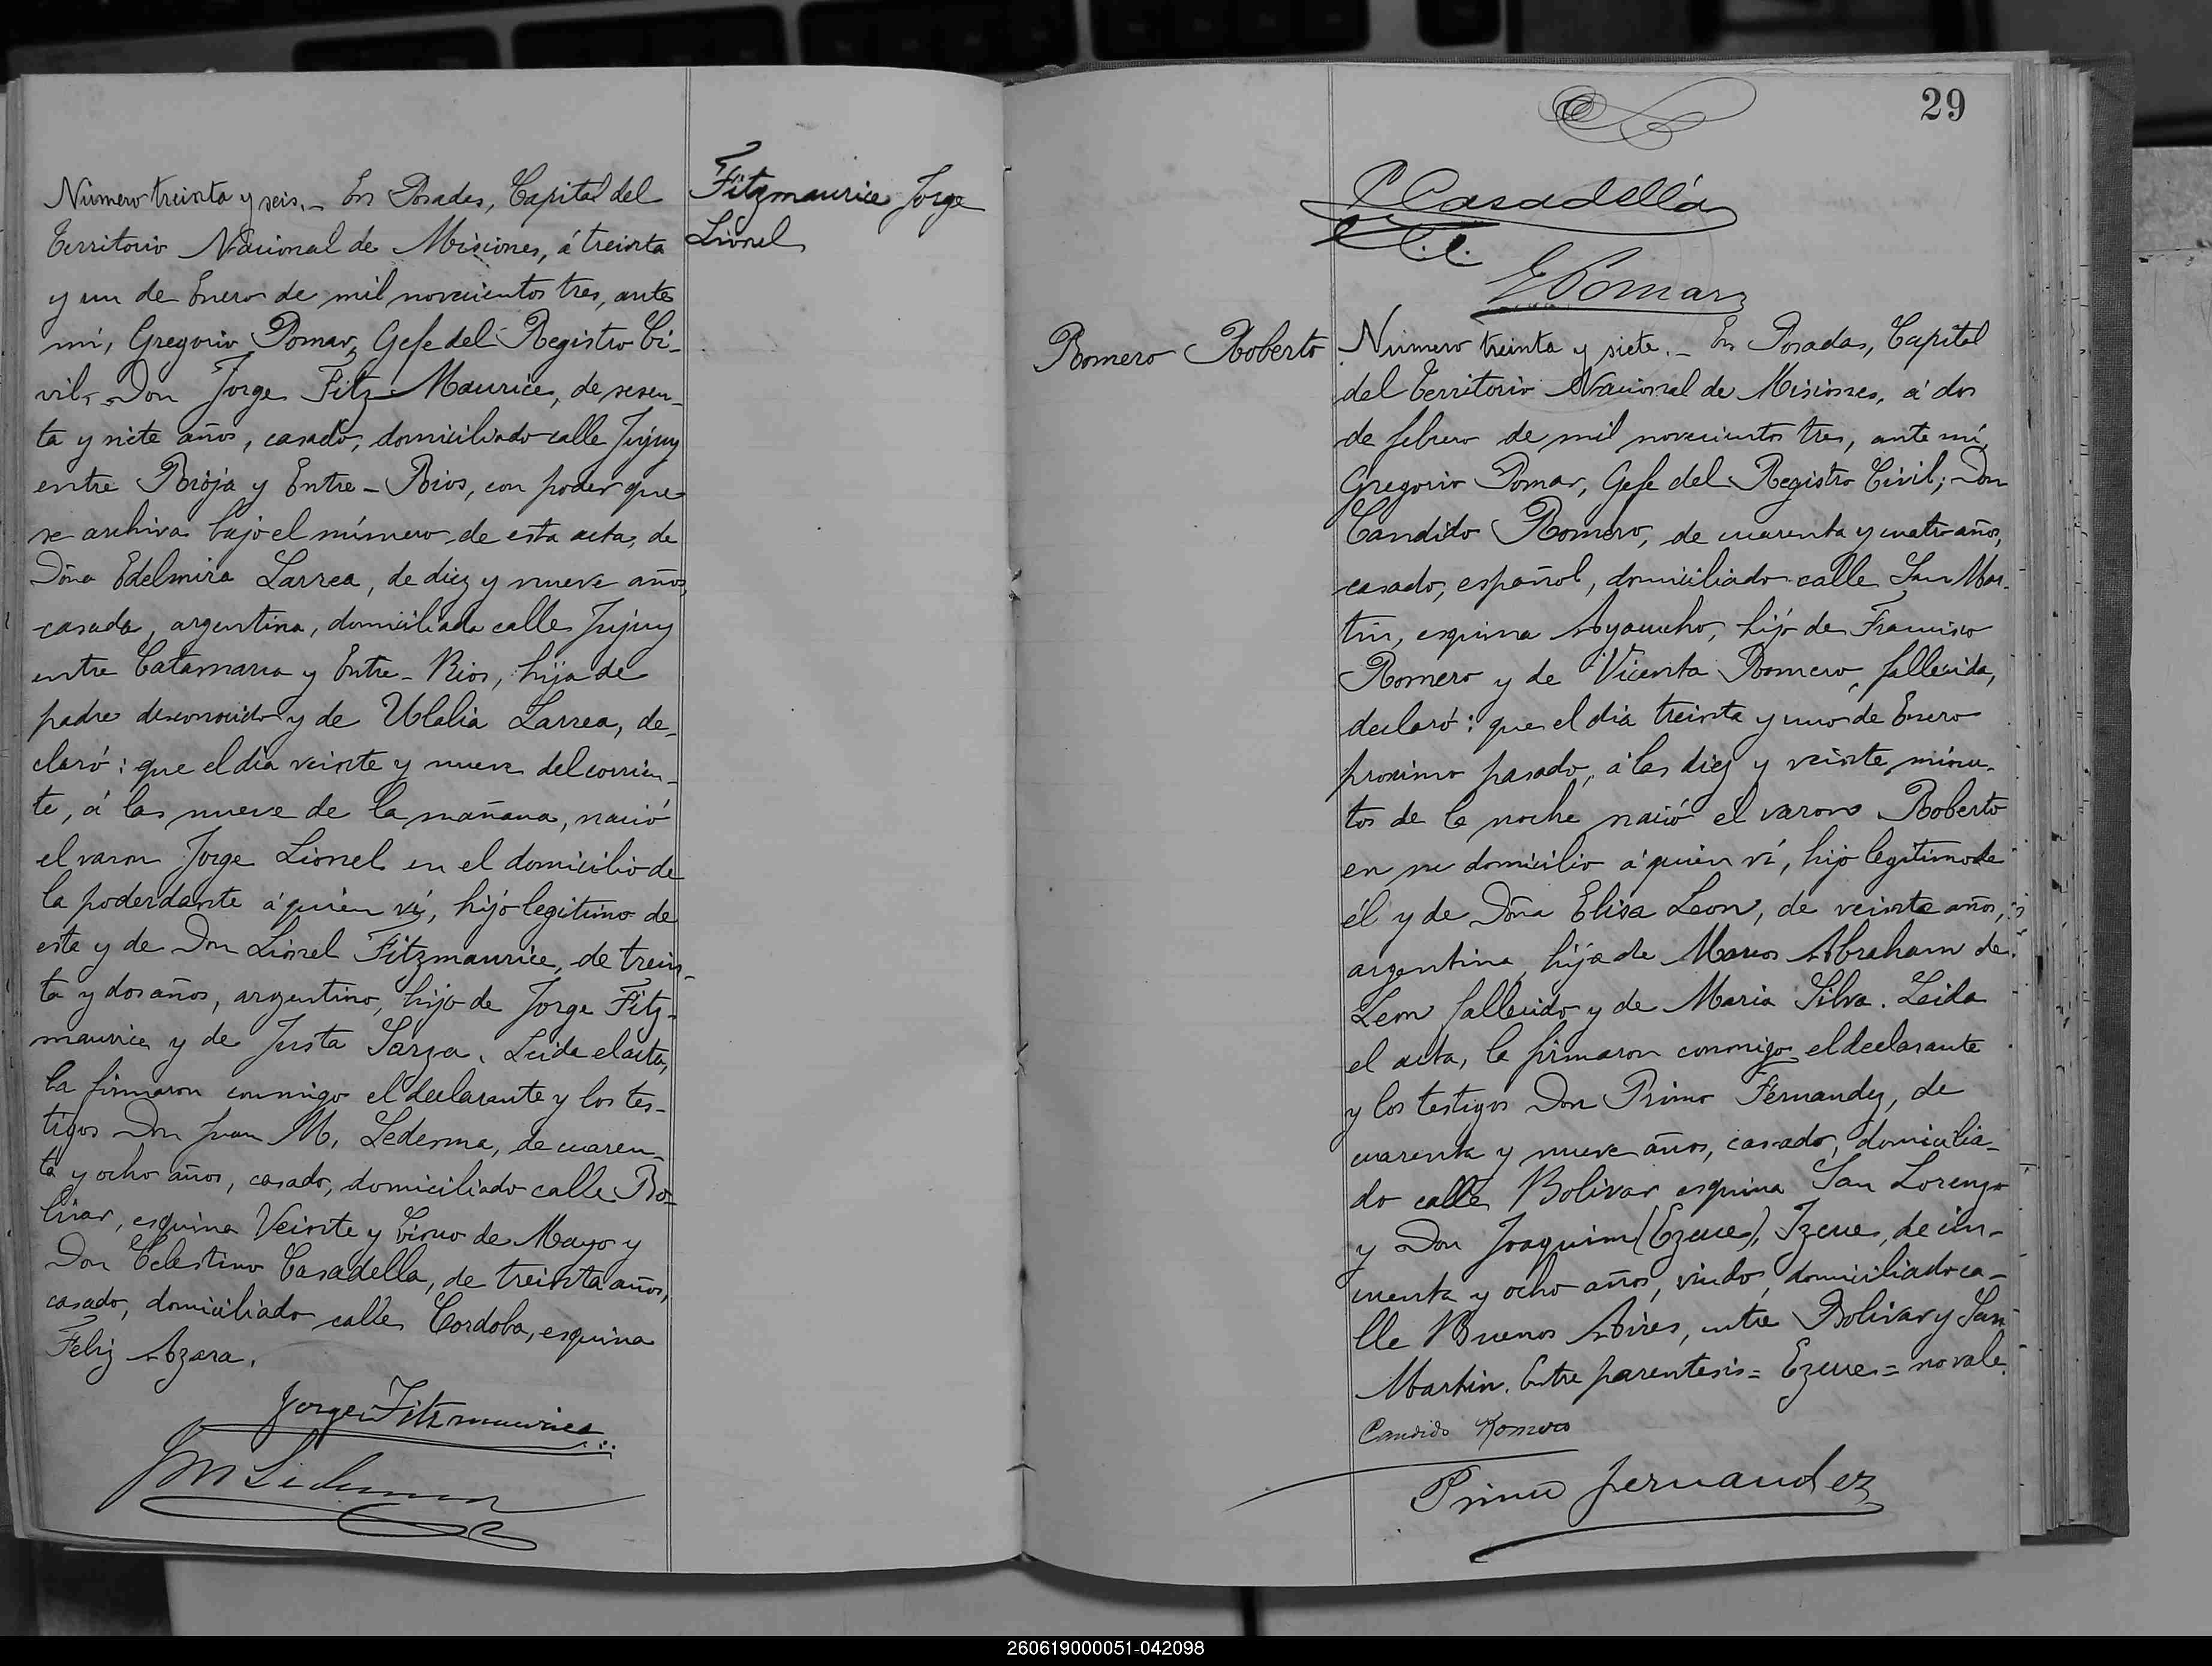 Número treinta y seis._ En Posadas, Capital del
Territorio Nacional de Misiones, á treinta
y un de Enero de mil novecientos tres, ante
mí, Gregorio Pomar, Gefe del Registro Ci-
vil, Don Jorge Fitz Maurice, de sesen-
ta y siete años, casado, domiciliado calle Jujuy
entre Rioja y Entre-Rios, con poder que
se archiva bajo el número de esta acta, de
Doña Edelmira Larrea, de diez y nueve años,
casada, argentina, domiciliada calle Jujuy
entre Catamarca y Entre-Rios, hija de
padre desconocido y de Ulalia Larrea, de-
claró: que el dia veinte y nueve del corrien-
te, á las nueve de la mañana, nació
el varon Jorge Lionel en el domicilio de
la poderdante á quien ví, hijo legitimo de
esta y de Don Lionel Fitzmaurice, de trein-
ta y dos años, argentino, hijo de Jorge Fitz-
maurice y de Justa Sarza. Leida el acta,
la firmaron conmigo el declarante y los tes-
tigos Don Juan M. Ledesma, de cuaren-
ta y ocho años, casado, domiciliado calle Bo-
livar, esquina Veinte y Cinco de Mayo y
Don Celestino Casadella, de treinta años,
casado, domiciliado calle Cordoba, esquina
Feliz Azara.
Jorge Fitzmaurice
JM Ledesma
Fitzmaurice Jorge
Lionel
29
C Casadellá
G Pomar
Romero Roberto
Número treinta y siete._ En Posadas, Capital
del Territorio Nacional de Misiones, á dos
de febrero de mil novecientos tres, ante mí,
Gregorio Pomar, Gefe del Registro Civil; Don
Candido Romero, de cuarenta y cuatro años,
casado, español, domiciliado calle San Mar-
tin, esquina Ayacucho, hijo de Francisco
Romero y de Vicenta Romero, fallecida,
declaró: que el dia treinta y uno de Enero
proximo pasado, á las diez y veinte minu-
tos de la noche nació el varon Roberto
en su domicilio á quien ví, hijo legitimo de
él y de Doña Elisa Leon, de veinte años,
argentina, hija de Marcos Abraham de
Leon fallecido y de Maria Silva. Leida
el acta, la firmaron conmigo el declarante
y los testigos Don Primo Fernandez, de
cuarenta y nueve años, casado, domicilia-
do calle Bolivar esquina San Lorenzo
y Don Joaquim (Ezcue), Izcue, de cin-
cuenta y ocho años, viudo, domiciliado ca-
lle Buenos Aires, entre Bolivar y San
Martin. Entre parentesis= Ezcue= no vale.
Candido Romero
Primo fernandez
260619000051-042098